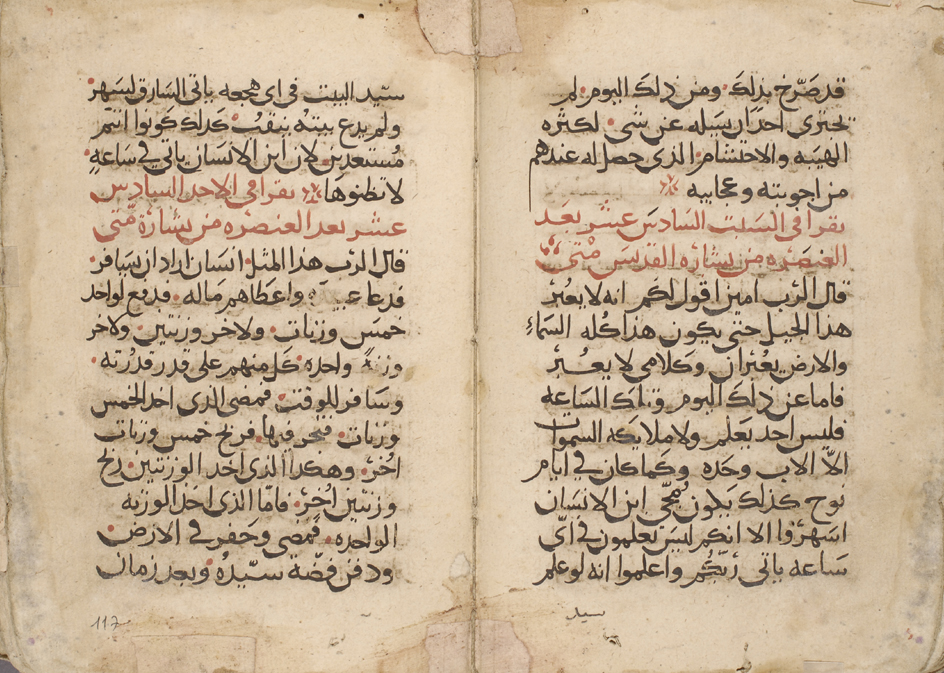 قد صرّخ بذلك ومن ذلك اليوم لم
يجترى احدًا ان يسله عن شى لكثره
الهيبه والاحتشام الذى حصل له عندهم
من اجوبته وعجايبه
يقرا فى السبت السادس عشر بعد
العنصره من بشاره القديس متى
قال الرب امين اقول لكم انه لا يعبر
هذا الجيل حتى يكون هذا كله السماء
والارض يعبران وكلامى لا يعبر
فاما عن ذلك اليوم وتلك الساعه
فليس احد يعلم ولا ملايكه السموات
الاّ الاب وحده وكما كان فى ايام
نوح كذلك يكون مجى ابن الانسان
اسهروا الا انكم ليس تعلمون فى اىّ
ساعه ياتى ربّكم واعلموا انه لو علم
سيد
سيّد البيت فى اى هجعه ياتى السارق لسهر
ولم يدع بيته ينقب كذلك كونوا انتم
مستعدين لان ابن الانسان ياتى فى ساعهٍ
لا تظنوها يقرا فى الاحد السادس
عشر بعد العنصره من بشارة متى
قال الرب هذا المثل انسان اراد ان يسافر
فدعا واعطاهم ماله فدفع لواحد
خمس وزنات ولاخر وزنتين ولاخر
وزنة واحده كل منهم على قدر قدرته
وسافر للوقت فمضى الذى اخذ الخمس
وزنات فتجر فيها فربح خمس وزنات
اخر وهكذا الذى اخذ الوزنتين ربح
وزنتين اخر فامّا الذى اخذ الوزنه
الواحده فمضى وحفر فى الارض
ودفن فضّة سيّده وبعد زمان
117